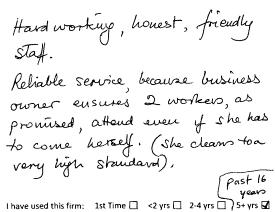 Hard working, honest, friendly
staff.
Reliable service, because business
owner ensures 2 workers, as
promised, attend even if she has
to come herself. (she cleans to a
very high standard).
past 16
years
I have used this firm: 1st Time ☐ <2 yrs ☐ 2-4 yrs ☐ 5+ yrs ☑